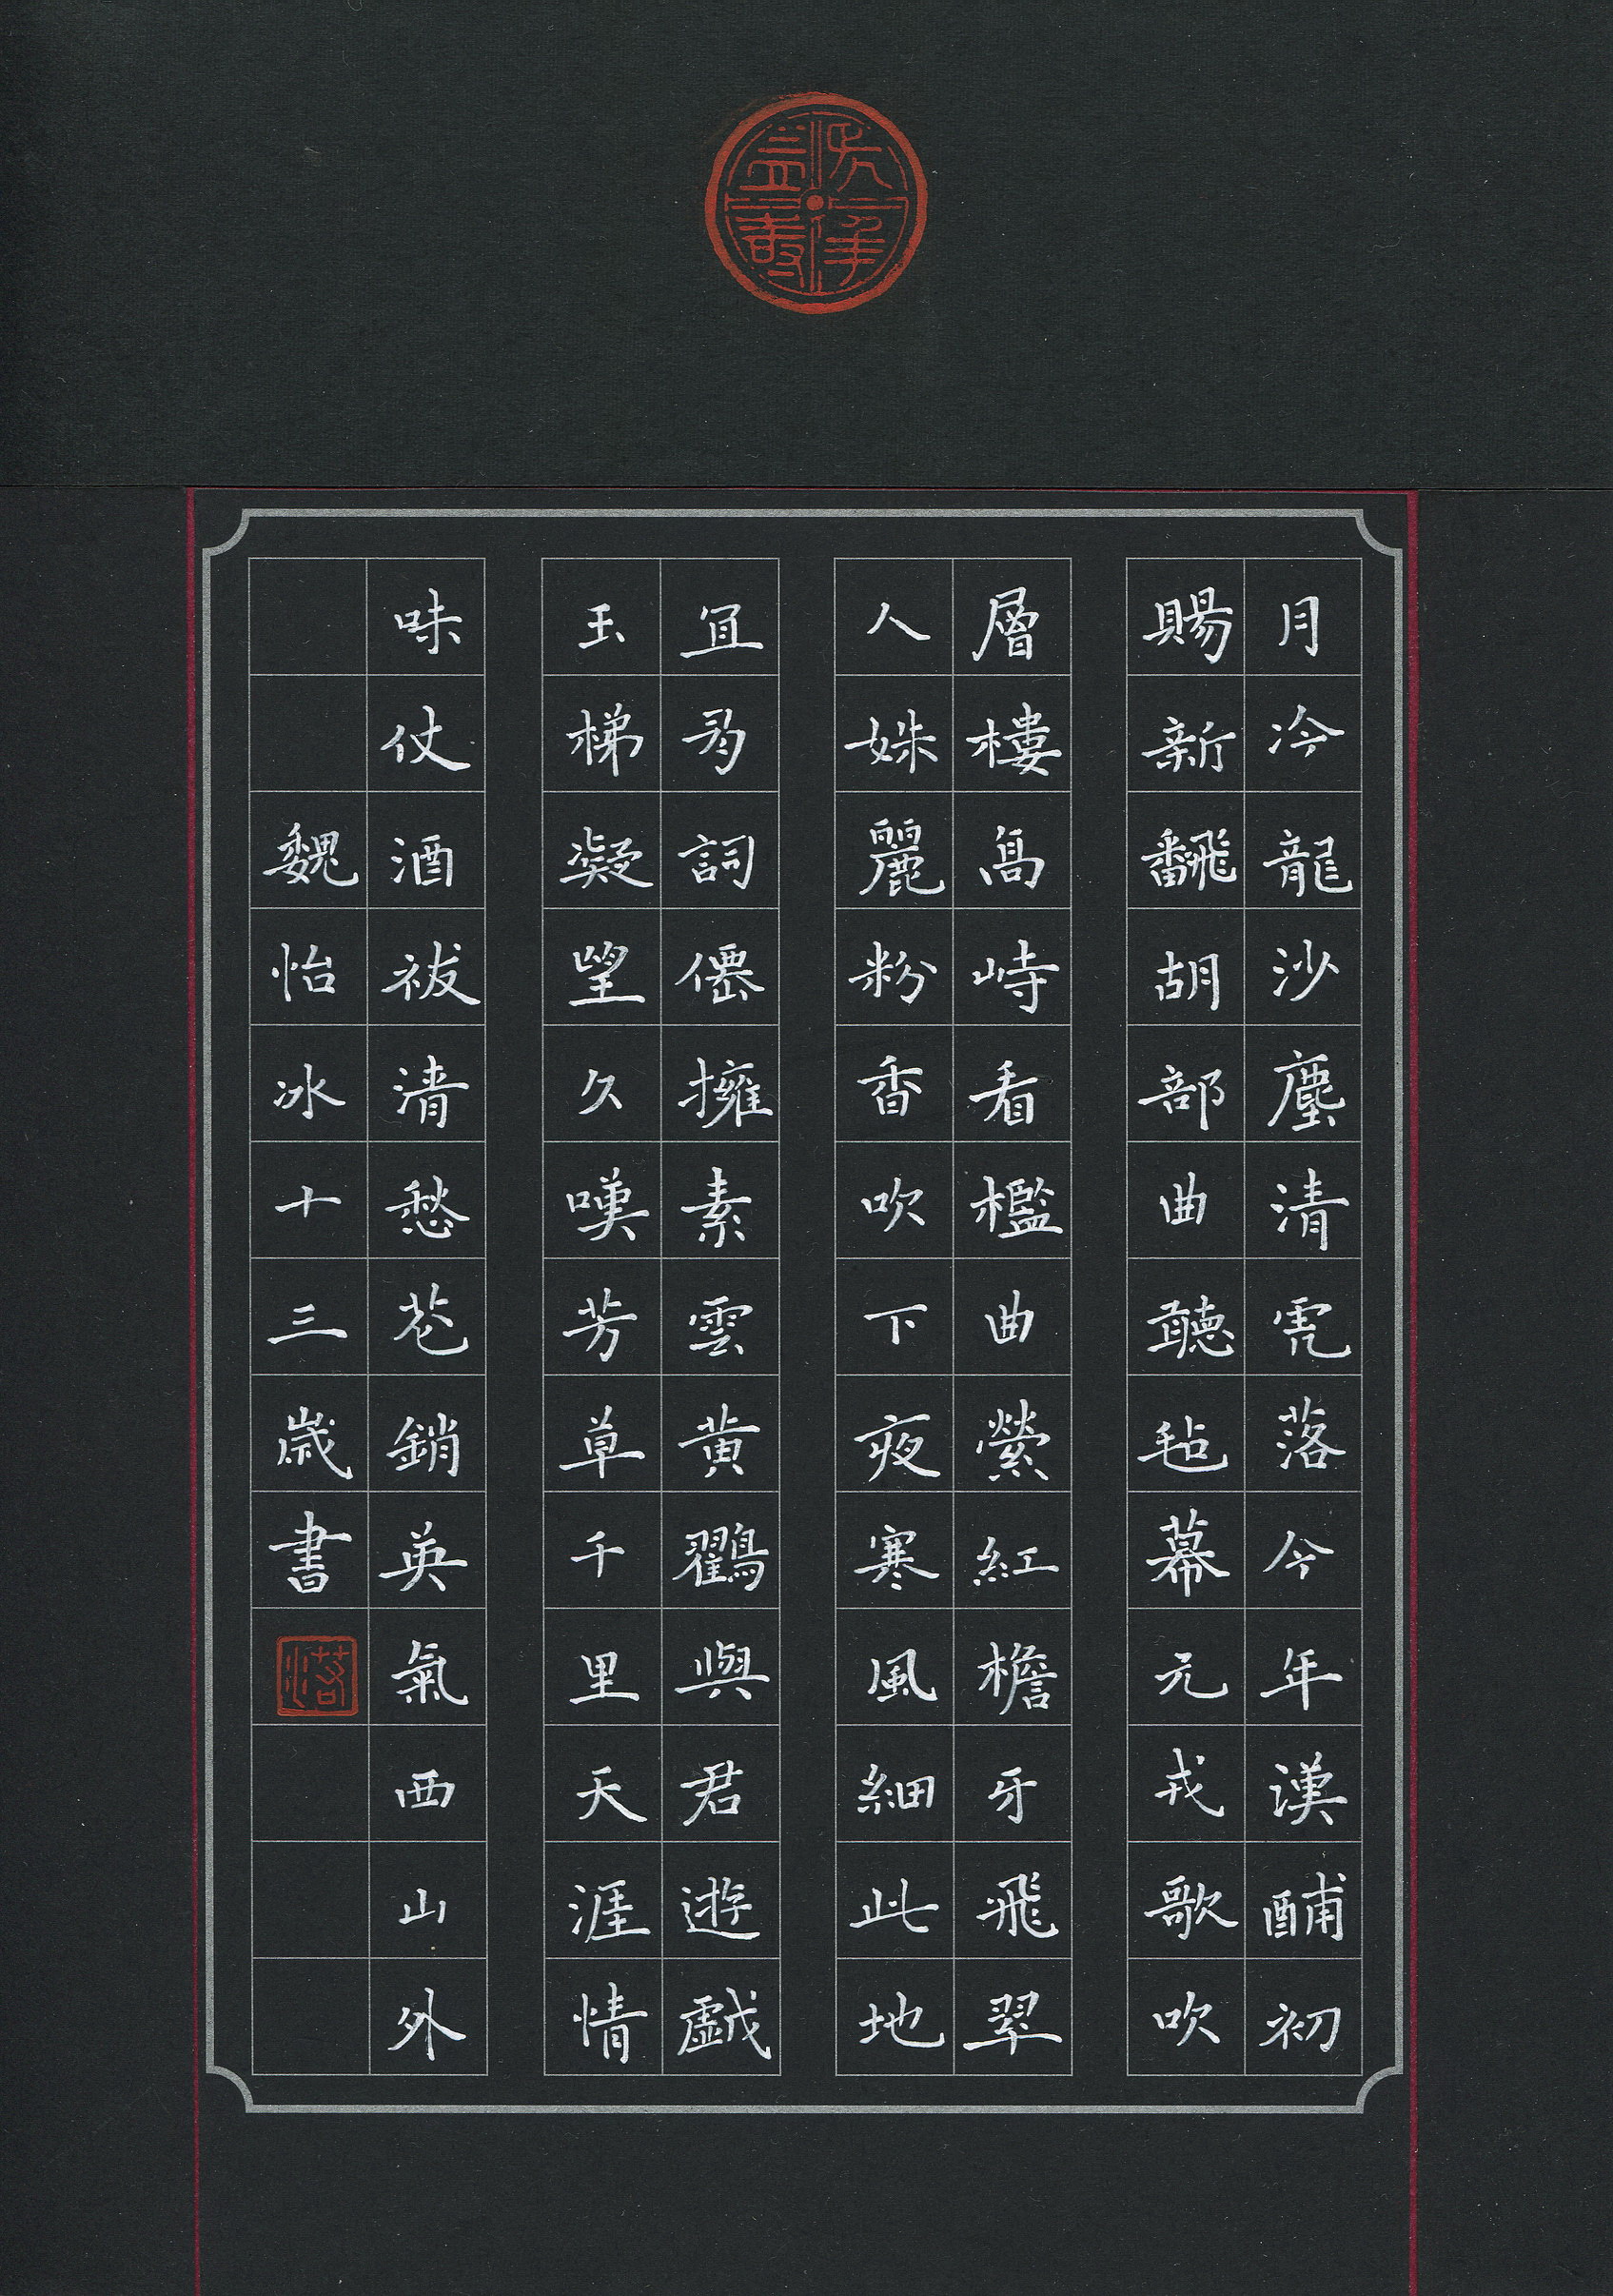 月冷龍沙塵清虎落今年漢酺初
賜新飜胡部曲聽毡幕元戎歌吹
層樓高峙看檻曲縈紅檐牙飛翠
人姝麗粉香吹下夜寒風細此地
宜爲詞僊擁素雲黃鸖與君遊戲
玉梯凝望久嘆芳草千里天涯情
味仗酒祓清愁花銷英氣西山外
魏怡冰十三歲書